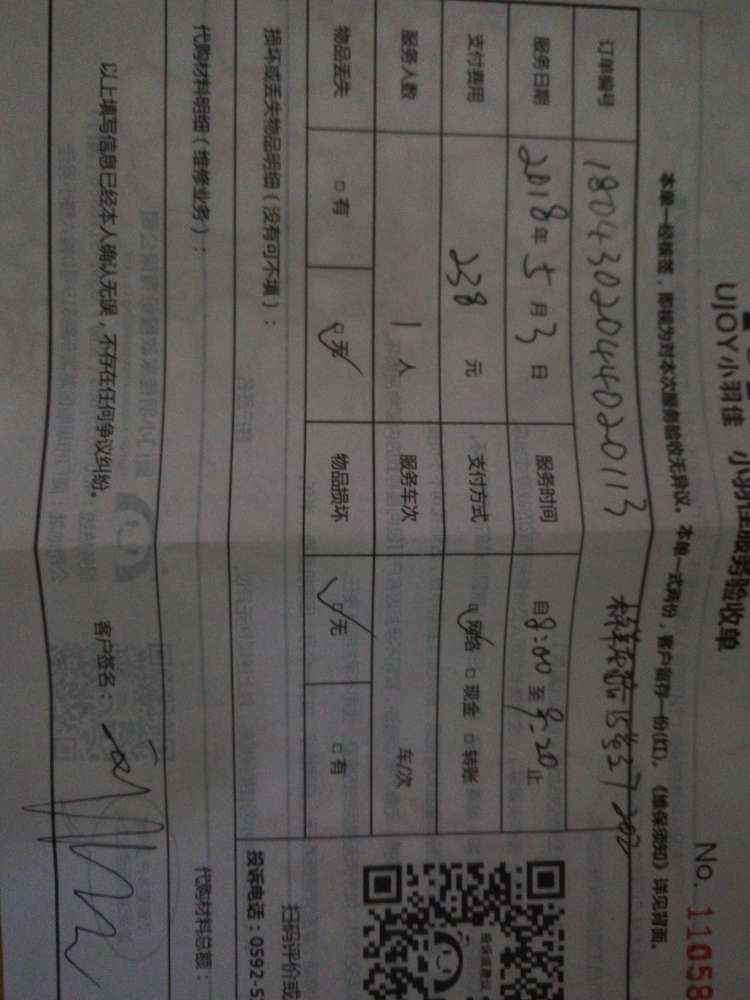 UJOY小羽佳 小羽佳服务验收单
No. 11058
本单一经核签，即视为对本次服务验收无异议。本单一式两份，客户留存一份(红)。《维保须知》详见背面。
订单编号 180430204402011３
服务日期 2018年5月3日 服务时间 自8:00至9:20止
支付费用 238元 支付方式 网络 □现金 □转账
服务人数 1人 服务车次 车/次
物品丢失 □有 □无 物品损坏 □无 □有
损坏或丢失物品明细（没有可不填）：
扫码评价或
投诉电话：0592-5
代购材料明细（维修业务）： 代购材料总额：
以上填写信息已经本人确认无误，不存在任何争议纠纷。 客户签名：